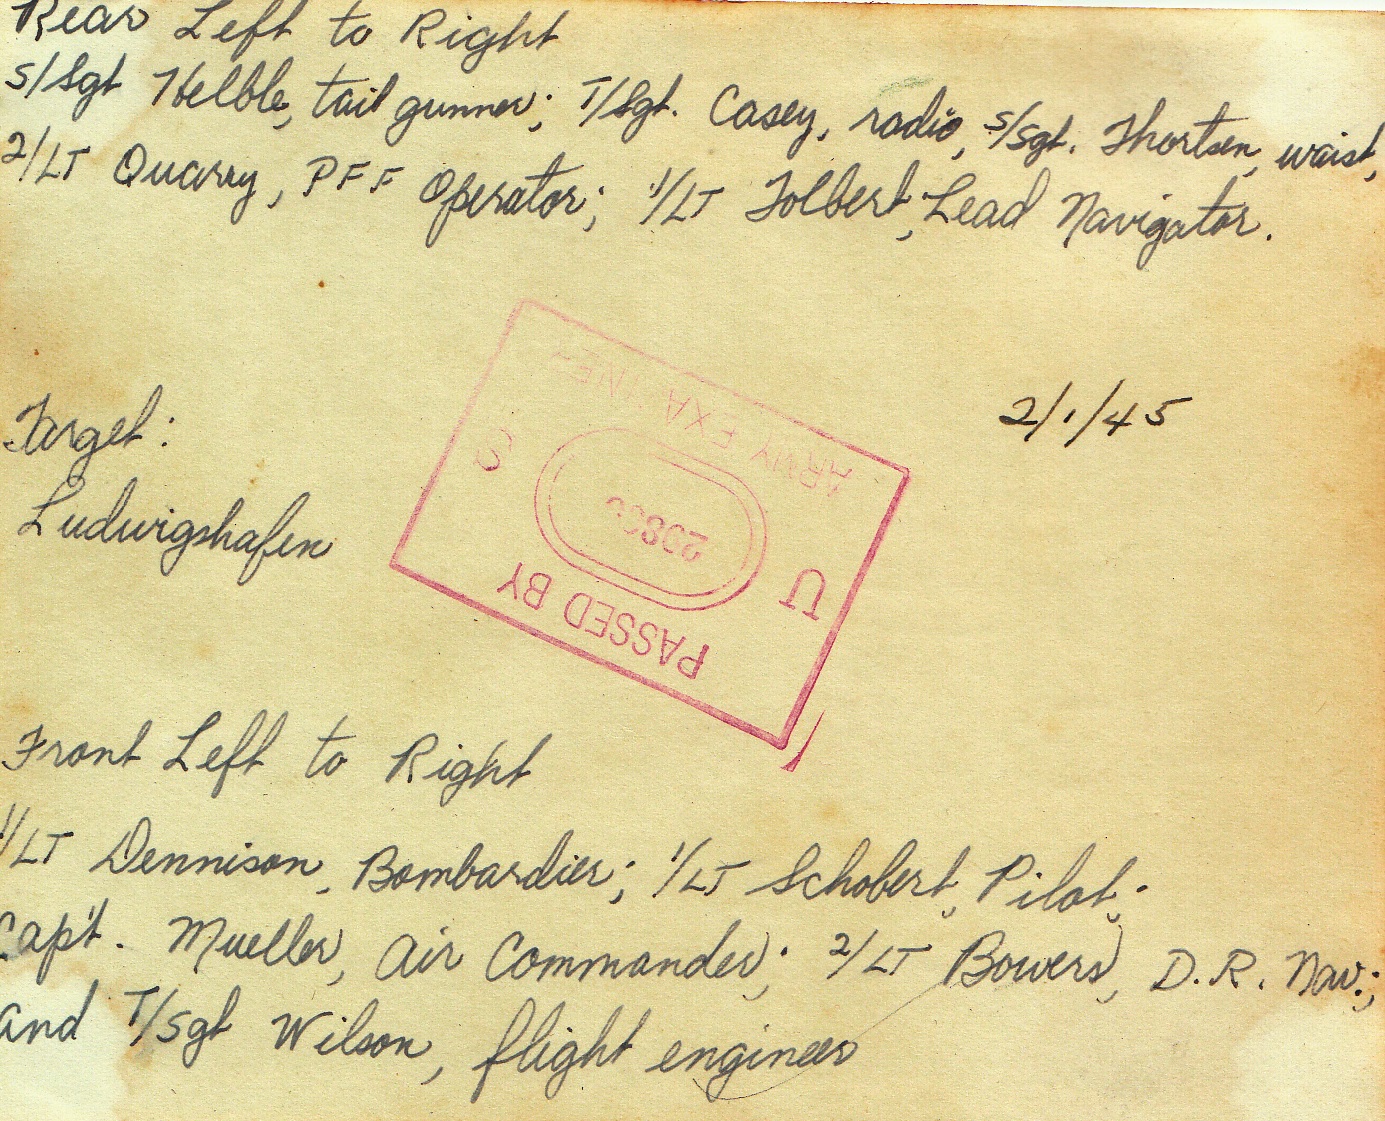 Rear Left to Right
S/Sgt Helble, tail gunner; T/Sgt. Casey, radio, S/Sgt. Thortsen, waist,
2/LT Quarry, PFF Operator; 1/LT Tolbert, Lead Navigator.
2/1/45
Target:
Ludwigshafen
PASSED BY
U S
ARMY EXAMINER
Front Left to Right
1/LT Dennison, Bombardier; 1/LT Schobert, Pilot;
Capt. Mueller, Air Commander; 2/LT Bowers, D.R. Nav.;
and T/Sgt Wilson, flight engineer